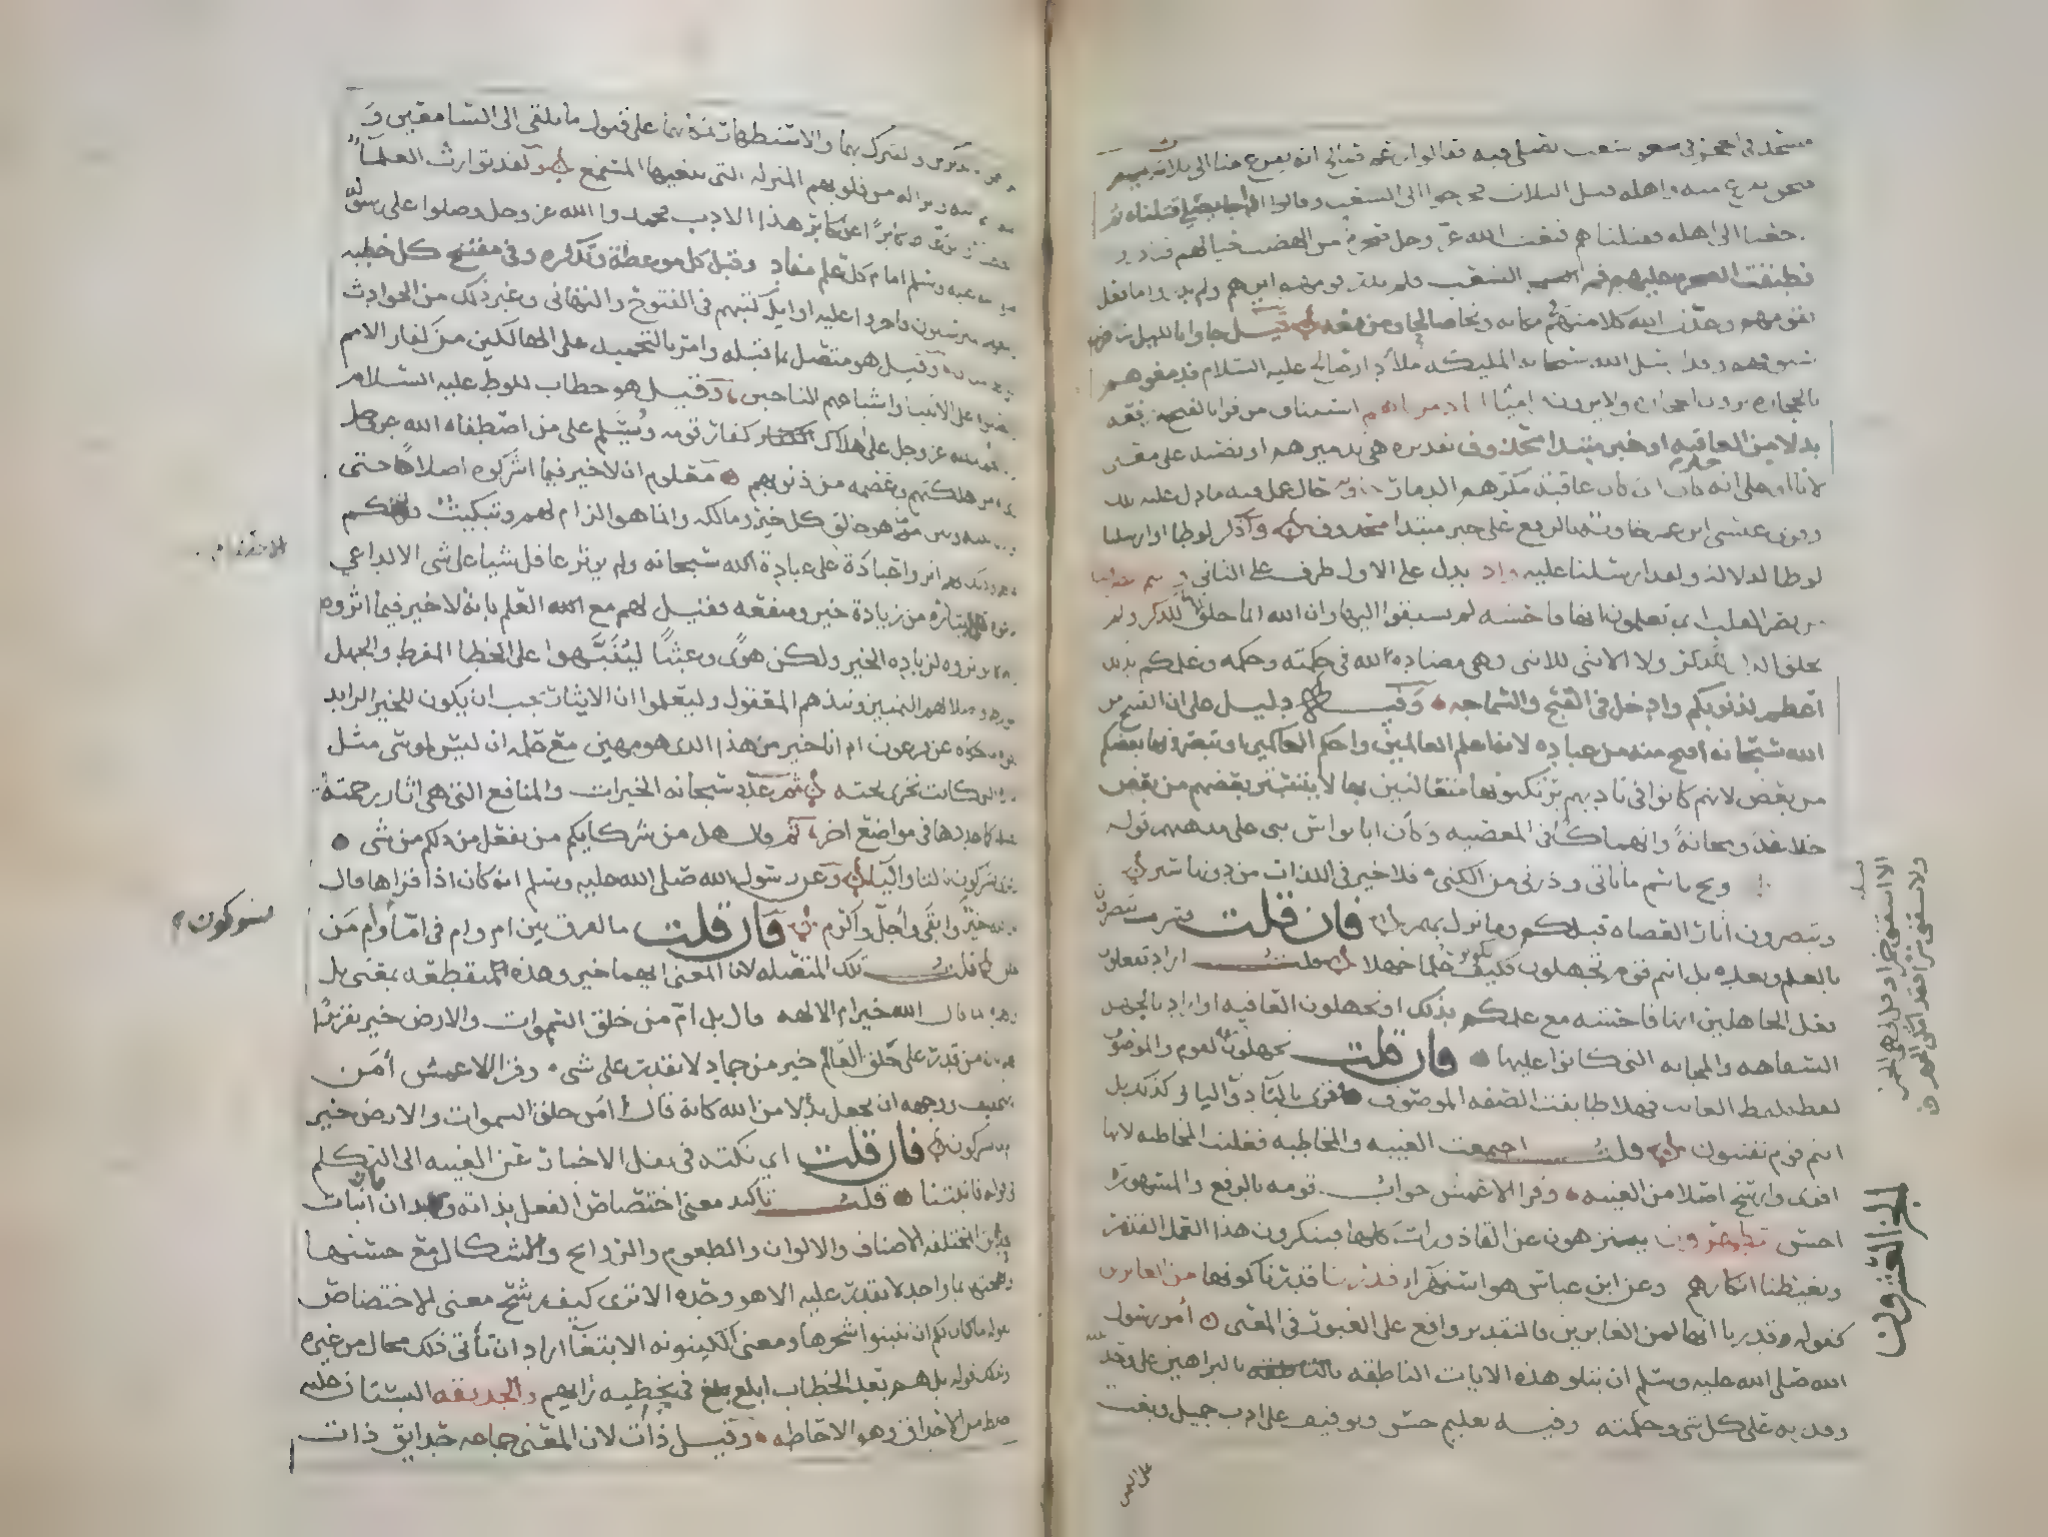 مسجد في الحجر في شعب يصلي فيه فقالوا زعم صالح انه يفرغ منا الى ثلاث
فنحن نفرغ منه واهله قبل الثلاث فخرجوا الى الشعب وقالوا اذا جا يصلي قتلناه ثم
رجعنا الى اهله فقتلناهم فبعث الله عز وجل صخرة من الهضب حيالهم فبادروا
فطبقت عليهم فم الشعب فلم يدر قومهم اين هم ولم يدروا ما فعل
بقومهم وعذب الله كلا منهم في مكانه ونجا صالحا ومن معه وقيل جاوا بالليل
وقد ارسل الله سبحانه الملئكة ملأ دار صالح عليه السلام فدمغوهم
بالحجارة يرون الحجارة ولا يرون راميا انا دمرناهم استيناف ومن قرا بالفتح رفعه
بدلا من العاقبه او خبر مبتدا محذوف تقديره هي تدميرهم او نصبه على معنى
لانا او على انه خبر كان اي كان عاقبة مكرهم الدمار خاوية حال عمل فيه ما دل عليه تلك
وقرى عيسى ابن عمر خاوية بالرفع على خبر مبتدا محذوف واذكر لوطا او ارسلنا
لوطا لدلالة ولقد ارسلنا عليه واذ بدل على الاول ظرف على الثاني
من بصر القلب اي تعلمون انها فاحشه لم تسبقوا اليها وان الله انما خلق الانثى للذكر ولم
يخلق الذكر للذكر ولا الانثى للانثى وهي مضادة لله في حكمته وحكمه وعلمكم بذلك
اعظم لذنوبكم وادخل في القبح والسماجه وقيل دليل على ان القبيح من
الله سبحانه اقبح منه من عباده لانه اعلم العالمين واحكم الحاكمين او تبصرونها بعضكم
من بعض لانهم كانوا في ناديهم يرتكبونها معالنين بها لا يتستر بعضهم من بعض
خلاعة ومجانة وانهماكا في المعصيه وكأن ابا نواس بنى على مذهبهم قوله
وبح باسم ما تاتي وذرني من الكنى فلا خير في اللذات من دونها ستر
وتبصرون اثار العصاه قبلكم وما نزل بهم فان قلت فسرت تبصرون
بالعلم وبعده بل انتم قوم تجهلون فكيف يكونون علما جهلا قلت اراد تفعلون
فعل الجاهلين انها فاحشه مع علمكم بذلك او تجهلون العاقبه او اراد بالجهل
السفاهه والمجانه التي كانوا عليها فان قلت تجهلون صفة لقوم والموصوف
لفظه لفظ الغايب فهلا طابقت الصفه الموصوف فقرى باليا دون التا وكذلك بل
انتم قوم تفتنون قلت اجتمعت الغيبه والمخاطبه فغلبت المخاطبه لانها
اقوى وارسخ اصلا من الغيبه وقرا الاعمش جواب قومه بالرفع والمشهوره
احسن يتطهرون يتنزهون عن القاذورات كلها فينكرون هذا العمل القذر
ويغيظنا انكارهم وعن ابن عباس هو استهزاء قدرناها قدرنا كونها من الغابرين
كقوله قدرنا انها لمن الغابرين فالتقدير واقع على الغبور في المعنى أمر رسول
الله صلى الله عليه وسلم ان يتلو هذه الايات الناطقه بالبراهين على وحدانيته
وقدرته على كل شي وحكمته وفيه تعليم حسن وتوقيف على ادب جميل وبعث
الجز العشرون
على التيمن
على الذكرين والتبرك بهما والاستظهار بمكانهما على قبول ما يلقى الى السامعين و
اصغائهم اليه وانزاله من قلوبهم المنزلة التي يبغيها المستمع ولقد توارث العلماء
والخطباء والوعاظ كابرا عن كابر هذا الادب فحمدوا الله عز وجل وصلوا على رسول الله
صلى الله عليه وسلم امام كل علم مفاد وقبل كل موعظة وتذكرة وفي مفتتح كل خطبه
وتبعهم المترسلون فاجروا عليه اوايل كتبهم في الفتوح والتهاني وغير ذلك من الحوادث
التي لها شان وقيل هو متصل بما قبله وامر بالتحميد على الهالكين من كفار الامم
والصلوة على الانبيا واشياعهم الناجين وقيل هو خطاب للوط عليه السلام
وان يحمد الله عز وجل على هلاك كفار قومه ويسلم على من اصطفاه الله عز وجل
ونجاه من هلكتهم وعصمه من ذنوبهم معلوم ان لا خير فيما اشركوه اصلا حتى
يوازن بينه وبين من هو خالق كل خير ومالكه وانما هو الزام لهم وتبكيت وتهكم
بحالهم وذلك انهم اثروا عبادة على عبادة الله سبحانه ولم يوثر عاقل شيا على شي الا لداعي
يدعوه الى ايثاره من زيادة خير ومنفعه فقيل لهم مع العلم بانه لا خير فيما اثروه
وانهم لم يوثروه لزيادة الخير ولكن هوى وعبثا لينبهوا على الخطا المفرط والجهل
المورط واضلالهم التمييز ونبذهم المعقول وليعلموا ان الايثار يجب ان يكون للخير الزايد
ونحوه ما حكاه عن فرعون ام انا خير من هذا الذي هو مهين مع علمه ان ليس لموسى مثل
انهاره التي كانت تجري تحته ثم عدد سبحانه الخيرات والمنافع التي هي اثار رحمته
وفضله كما عددها في مواضع اخر ثم قال هل من شركايكم من يفعل من ذلكم من شي
وقرى يشركون بالتا واليا وعن رسول الله صلى الله عليه وسلم انه كان اذا قراها قال
بل الله خير وابقى واجل واكرم فان قلت ما الفرق بين ام وام في اما وام من
خلق قلت تلك المتصله لان المعنى ايهما خير وهذه المنقطعه بمعنى بل
والهمزة لما قال الله خير ام الالهه قال بل ام من خلق السموات والارض خير تقريرا
لهم بان من قدر على خلق العالم خير من جماد لا يقدر على شي وقرا الاعمش أمن
بالتخفيف ووجهه ان يجعل بدلا من الله كانه قال أمن خلق السموات والارض خير
ام ما تشركون فان قلت اي نكته في نقل الاخبار عن الغيبه الى التكلم
في قوله فانبتنا قلت تاكيد معنى اختصاص الفعل بذاته والايذان بان انبات
الحدايق المختلفه الاصناف والالوان والطعوم والروايح والاشكال مع حسنها
وبهجتها بما واحد لا يقدر عليه الا هو وحده الا ترى كيف رشح معنى الاختصاص
بقوله ما كان لكم ان تنبتوا شجرها ومعنى الكينونه الابتغا اراد ان تأتي ذلك محال من غيره
وكذلك قوله بل هم بعد الخطاب ابلغ في تخطيه رايهم والحديقه البستان عليه
حايط من الاحداق وهو الاحاطه وقيل ذات لان المعنى جماعه حدايق ذات